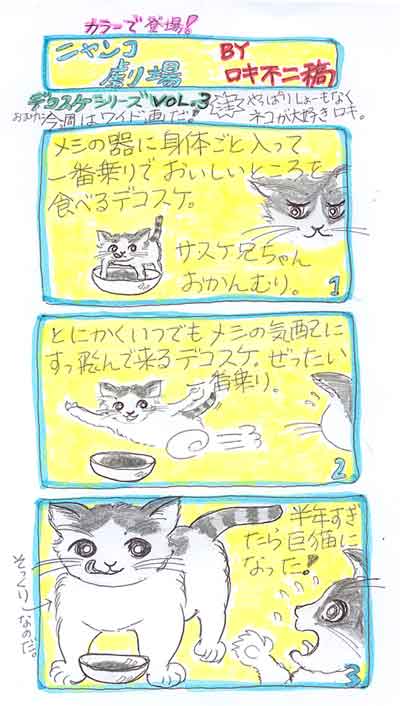 カラーで登場!
ニャンコ
劇場
BY
ロキ不二稿
デコスケシリーズ VOL.3
おまけに今週はワイド画だ!
やっぱりしょーもなく
ネコが大好きロキ。
メシの器に身体ごと入って
一番乗りでおいしいところを
食べるデコスケ。
サスケ兄ちゃん
おかんむり。
1
とにかくいつでもメシの気配に
すっ飛んで来るデコスケ。ぜったい
一番乗り。
2
半年すぎ
たら巨猫に
なった!
そっくりなのだ。
3